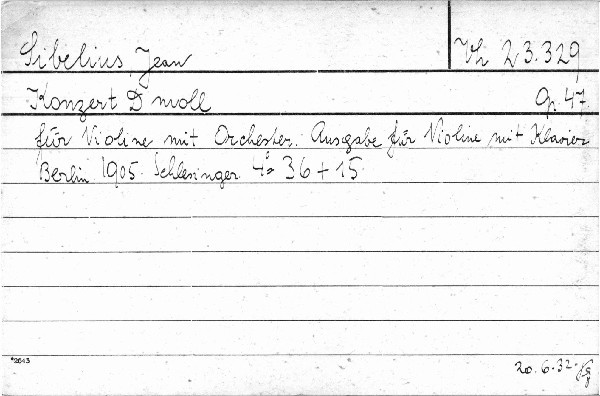 Sibelius, Jean Vh 23.329
Konzert D moll Op. 47.
für Violine mit Orchester. Ausgabe für Violine mit Klavier
Berlin 1905. Schlesinger. 4° 36 + 15.
*2643 20.6.32.